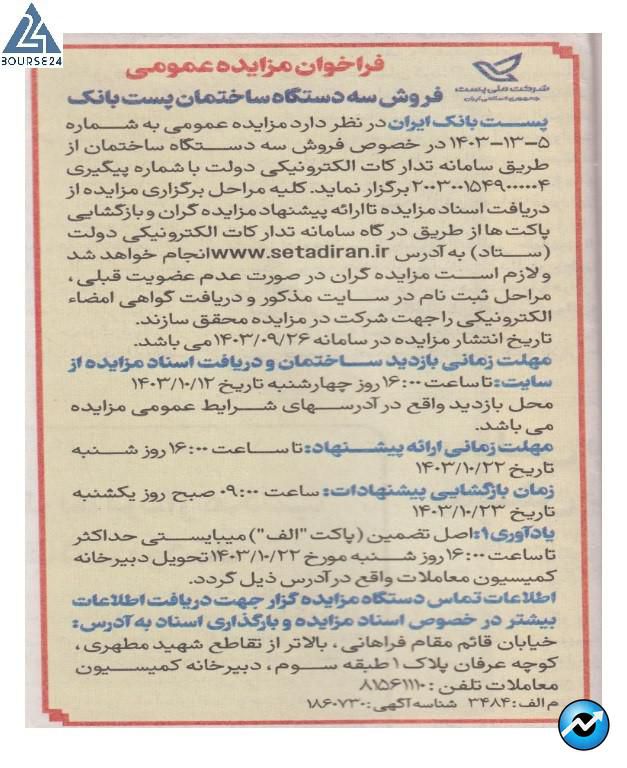 BOURSE24
فراخوان مزایده عمومی
شرکت ملی پست
جمهوری اسلامی ایران
فروش سه دستگاه ساختمان پست بانک
پست بانک ایران در نظر دارد مزایده عمومی به شماره
۵-۱۳-۱۴۰۳ در خصوص فروش سه دستگاه ساختمان از
طریق سامانه تدارکات الکترونیکی دولت با شماره پیگیری
۲۰۰۳۰۰۱۵۴۹۰۰۰۰۰۴ برگزار نماید. کلیه مراحل برگزاری مزایده از
دریافت اسناد مزایده تا ارائه پیشنهاد مزایده گران و بازگشایی
پاکت ها از طریق درگاه سامانه تدارکات الکترونیکی دولت
(ستاد) به آدرس www.setadiran.ir انجام خواهد شد
و لازم است مزایده گران در صورت عدم عضویت قبلی،
مراحل ثبت نام در سایت مذکور و دریافت گواهی امضاء
الکترونیکی را جهت شرکت در مزایده محقق سازند.
تاریخ انتشار مزایده در سامانه ۱۴۰۳/۰۹/۲۶ می باشد.
مهلت زمانی بازدید ساختمان و دریافت اسناد مزایده از
سایت: تا ساعت ۱۶:۰۰ روز چهارشنبه تاریخ ۱۴۰۳/۱۰/۱۲
محل بازدید واقع در آدرسهای شرایط عمومی مزایده
می باشد.
مهلت زمانی ارائه پیشنهاد: تا ساعت ۱۶:۰۰ روز شنبه
تاریخ ۱۴۰۳/۱۰/۲۲
زمان بازگشایی پیشنهادات: ساعت ۰۹:۰۰ صبح روز یکشنبه
تاریخ ۱۴۰۳/۱۰/۲۳
یادآوری۱: اصل تضمین (پاکت "الف") میبایستی حداکثر
تا ساعت ۱۶:۰۰ روز شنبه مورخ ۱۴۰۳/۱۰/۲۲ تحویل دبیرخانه
کمیسیون معاملات واقع در آدرس ذیل گردد.
اطلاعات تماس دستگاه مزایده گزار جهت دریافت اطلاعات
بیشتر در خصوص اسناد مزایده و بارگذاری اسناد به آدرس:
خیابان قائم مقام فراهانی، بالاتر از تقاطع شهید مطهری،
کوچه عرفان پلاک ۱ طبقه سوم، دبیرخانه کمیسیون
معاملات تلفن: ۸۱۵۶۱۱۱۰
م الف: ۳۴۸۴ شناسه آگهی: ۱۸۶۰۷۳۰